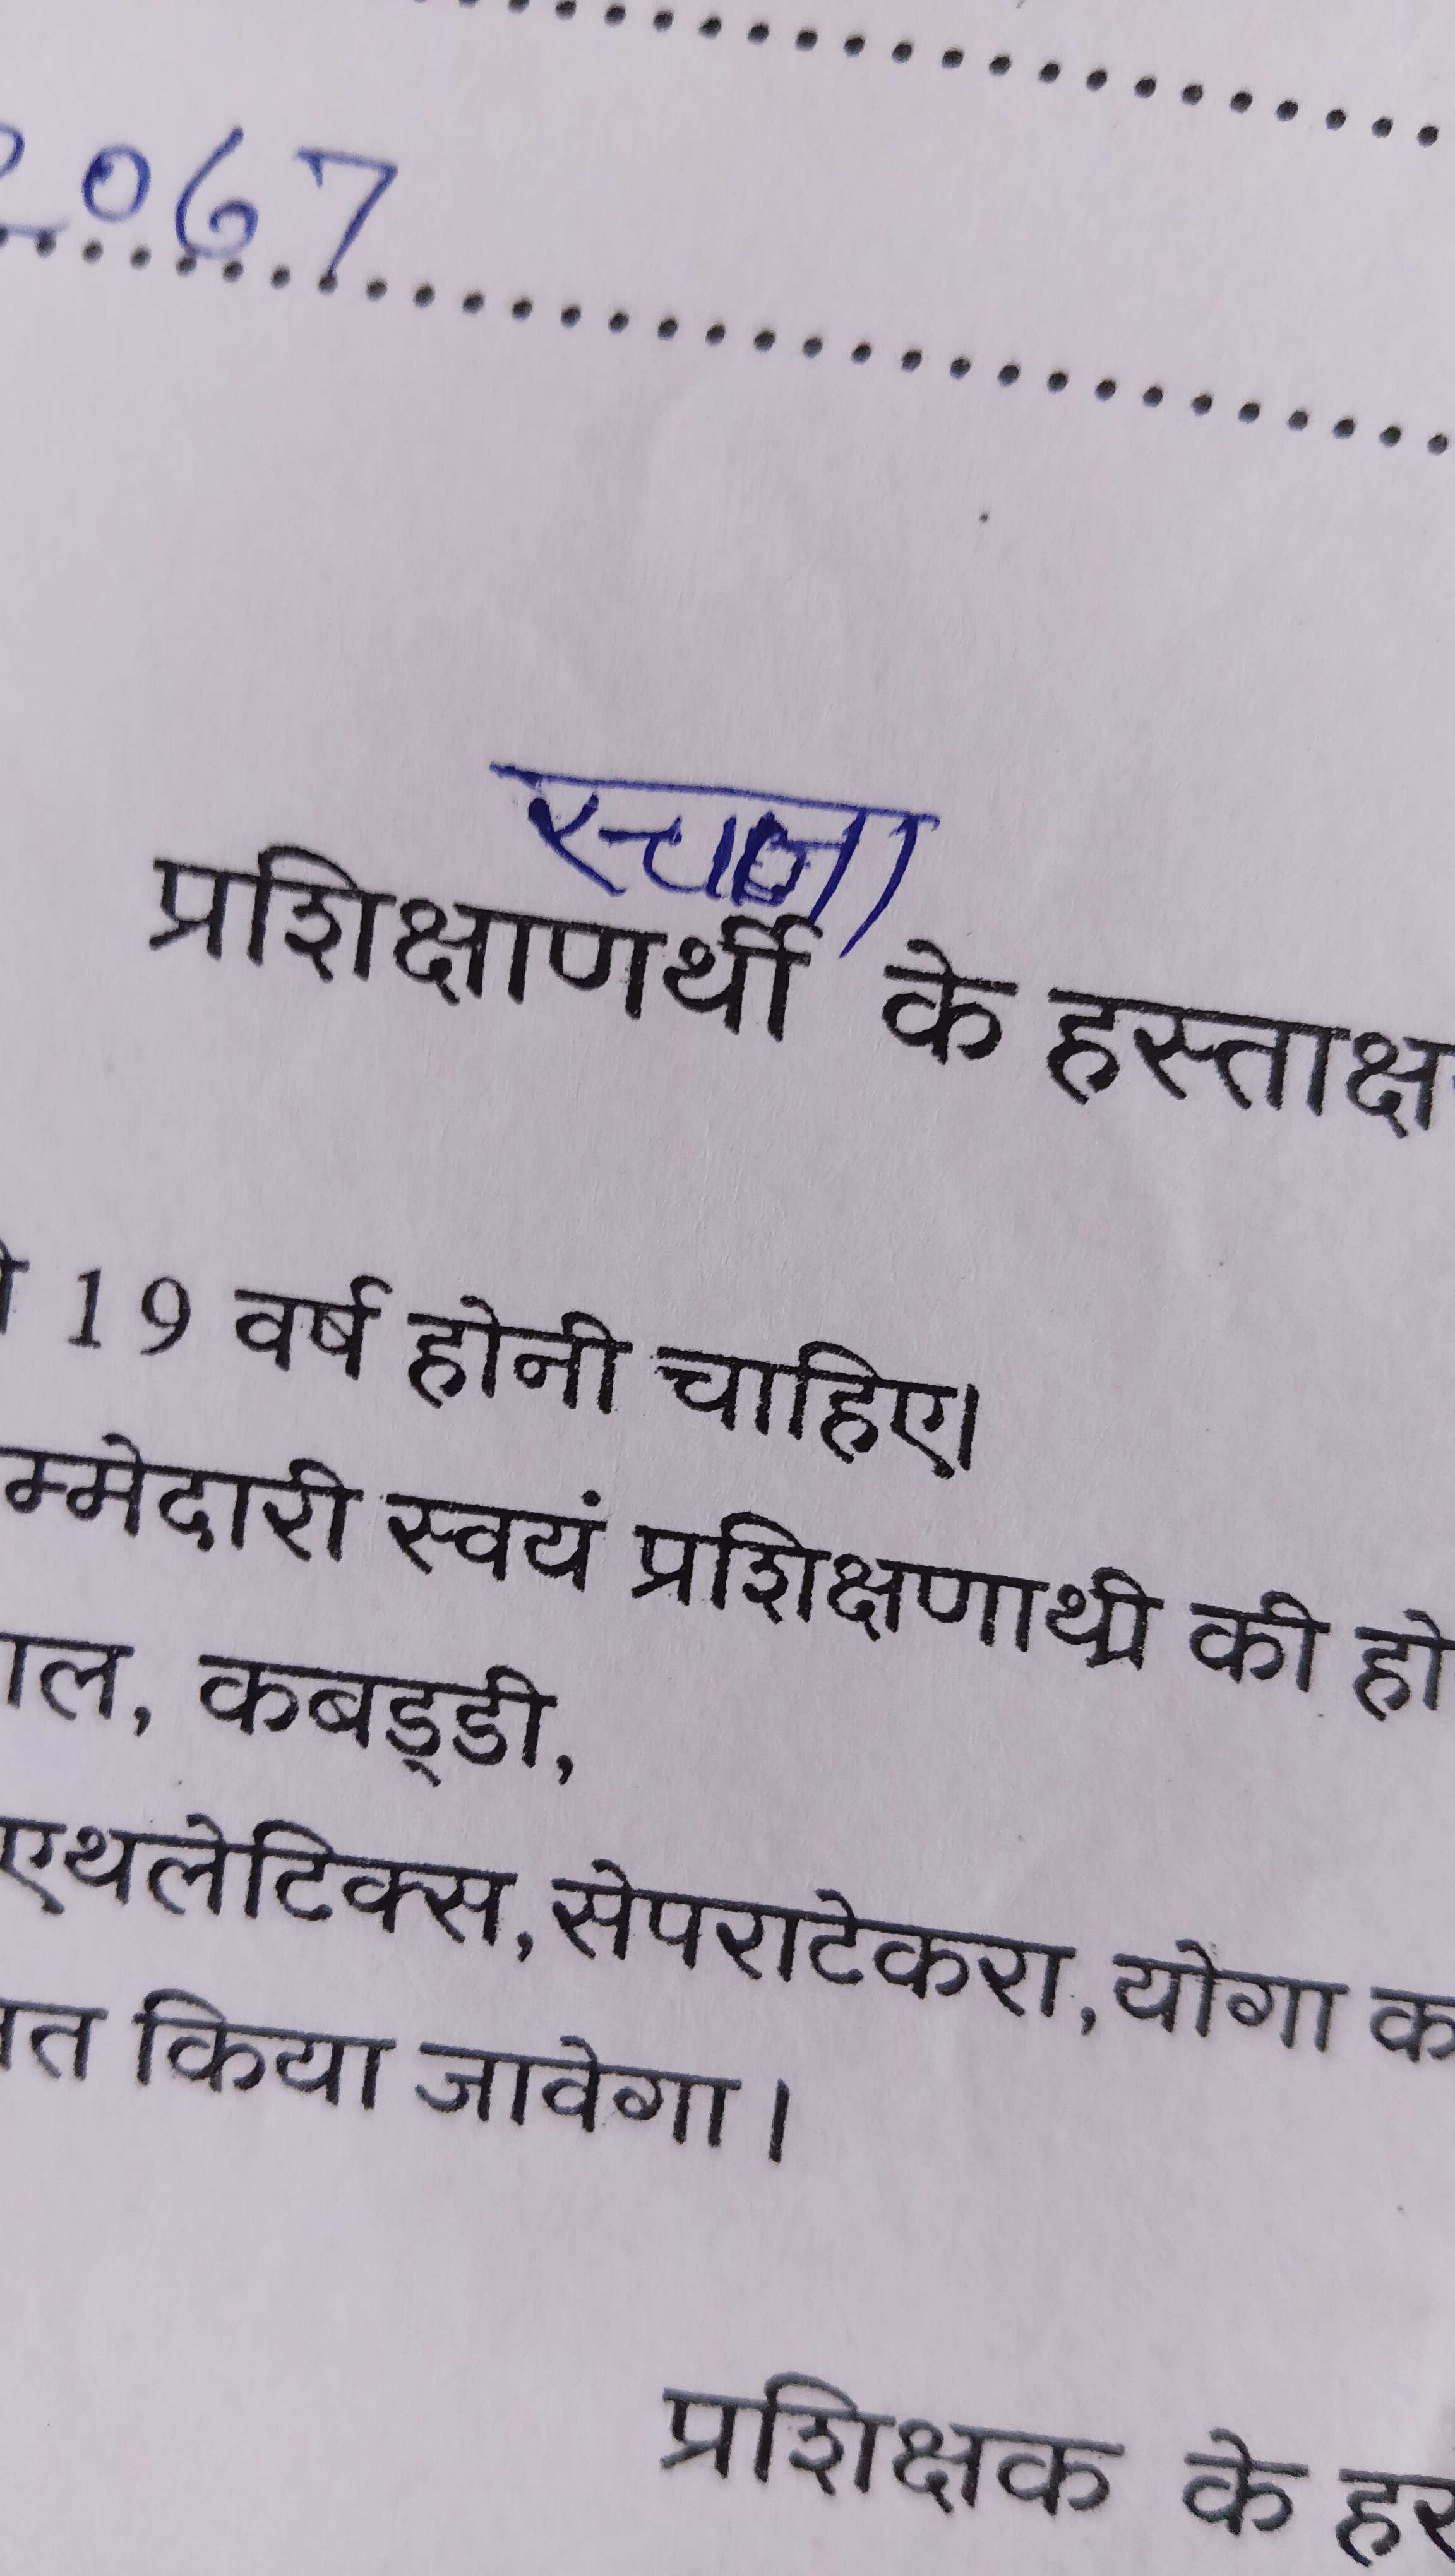 2067
प्रशिक्षाणर्थी के हस्ताक्ष
19 वर्ष होनी चाहिए।
म्मेदारी स्वयं प्रशिक्षणाथी की हो
ाल, कबड्डी,
एथलेटिक्स,सेपराटेकरा,योगा क
त किया जावेगा।
प्रशिक्षक के हस